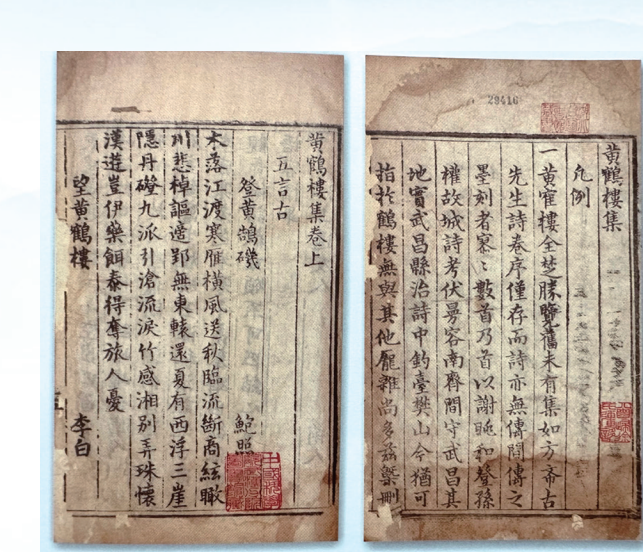 29416
黃鶴樓集
凡例
一黃寉樓全楚勝覽舊未有集如方齋古
先生詩卷序僅存而詩亦無傳間傳之
墨刻者寥〻數首乃首以謝眺和聲孫
權故城詩考伏曼容南齊間守武昌其
地實武昌縣治詩中釣臺樊山今猶可
指於鶴樓無與其他龐雜尚多茲槩刪
黃鶴樓集卷上
五言古
登黃鵠磯 鮑照
木落江渡寒雁橫風送秋臨流斷商絃瞰
川悲棹謳適郢無東轅還夏有西浮三崖
隱丹磴九派引滄流淚竹感湘別弄珠懷
漢遊豈伊藥餌泰得奪旅人憂
望黃鶴樓 李白